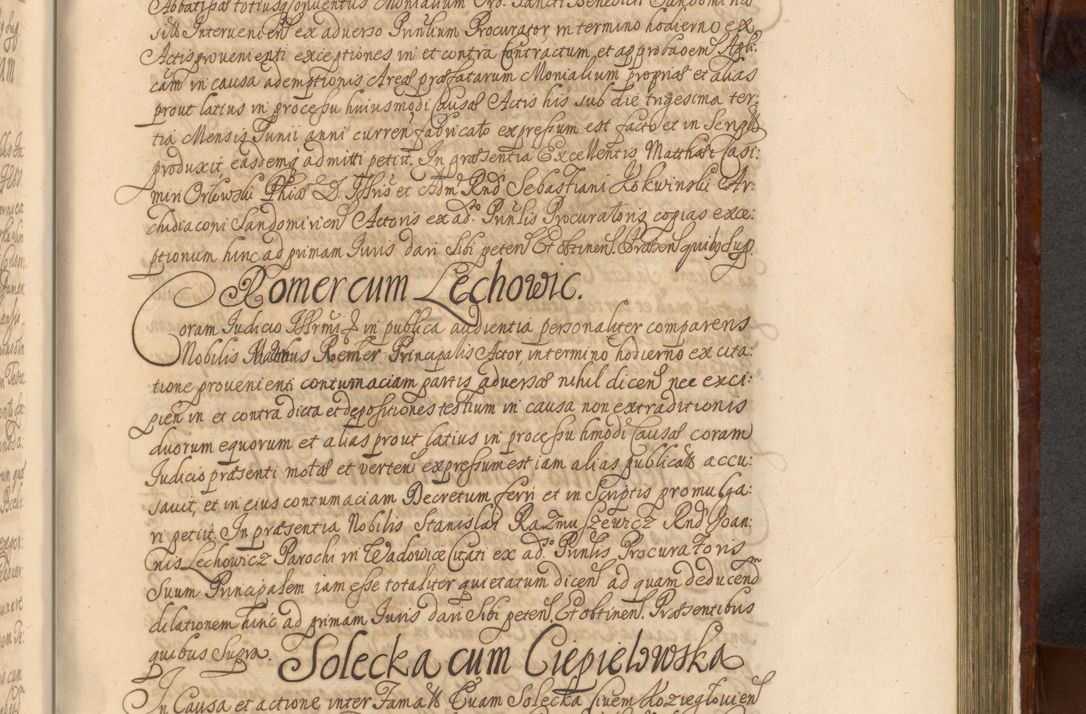 Abbatissae totiusq Conventus Monialium Ord. Sancti Benedicti Sandomirien
sis Intervenien ex adverso Prnlium Procurator, in termino hodierno ex
Actis provenienti exceptiones in et contra Contractum, et approbaoem Aplli
cam in causa ademptionis Areae praefatarum Monialium propriae et alias
prout latius in processu huiusmodi Causae Actis his sub die trigesima ter:
tia Mensis Junii anni curren fabricato expressum est facto et in Scriptis
produxit, easdemq admitti petiit. In praesentia Excellentis Matthaei Casi:
miri Orlowski Phiae D. Illris et Adm Rnd Sebastiani Kokwinski Ar:
chidiaconi Sandomirien Actoris ex ado. Prnlis Procuratoris copias exce:
ptionum hinc ad primam Juris dari Sibi peten Et obtinen. Praesen quibq Sup.
Romer cum Lechowic.
Coram Judicio Illrmi J in publica audientia personaliter comparens
Nobilis Roemer Principalis Actor, in termino hodierno ex cita:
tione provenienti contumaciam partis adversae nihil dicen nec exci:
pien in et contra dicta et depositiones testium in causa non extraditionis
duorum equorum et alias prout latius in processu hmodi Causae coram
Judicio praesenti motae et verten expressum est iam alias publicatis accu:
savit, et in eius contumaciam Decretum ferri et in Scriptis promulga:
ri petiit. In praesentia Nobilis Stanislai Razmuszewicz Rnd Joan:
nis Lechowicz Parochi in Wadowice Citati ex ado. Prnlis Procuratoris
Suum Principalem iam esse totaliter quietatum dicen ad quam deducendm
dilationem hinc ad primam Juris dari Sibi peten. Et obtinen. Praesentibus
quibus Supra.
Solecka cum Ciepielowska
In Causa et actione inter Famatis Evam Solecka Civem Kozieglovien